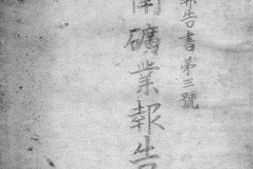 告書第三號
礦業報告